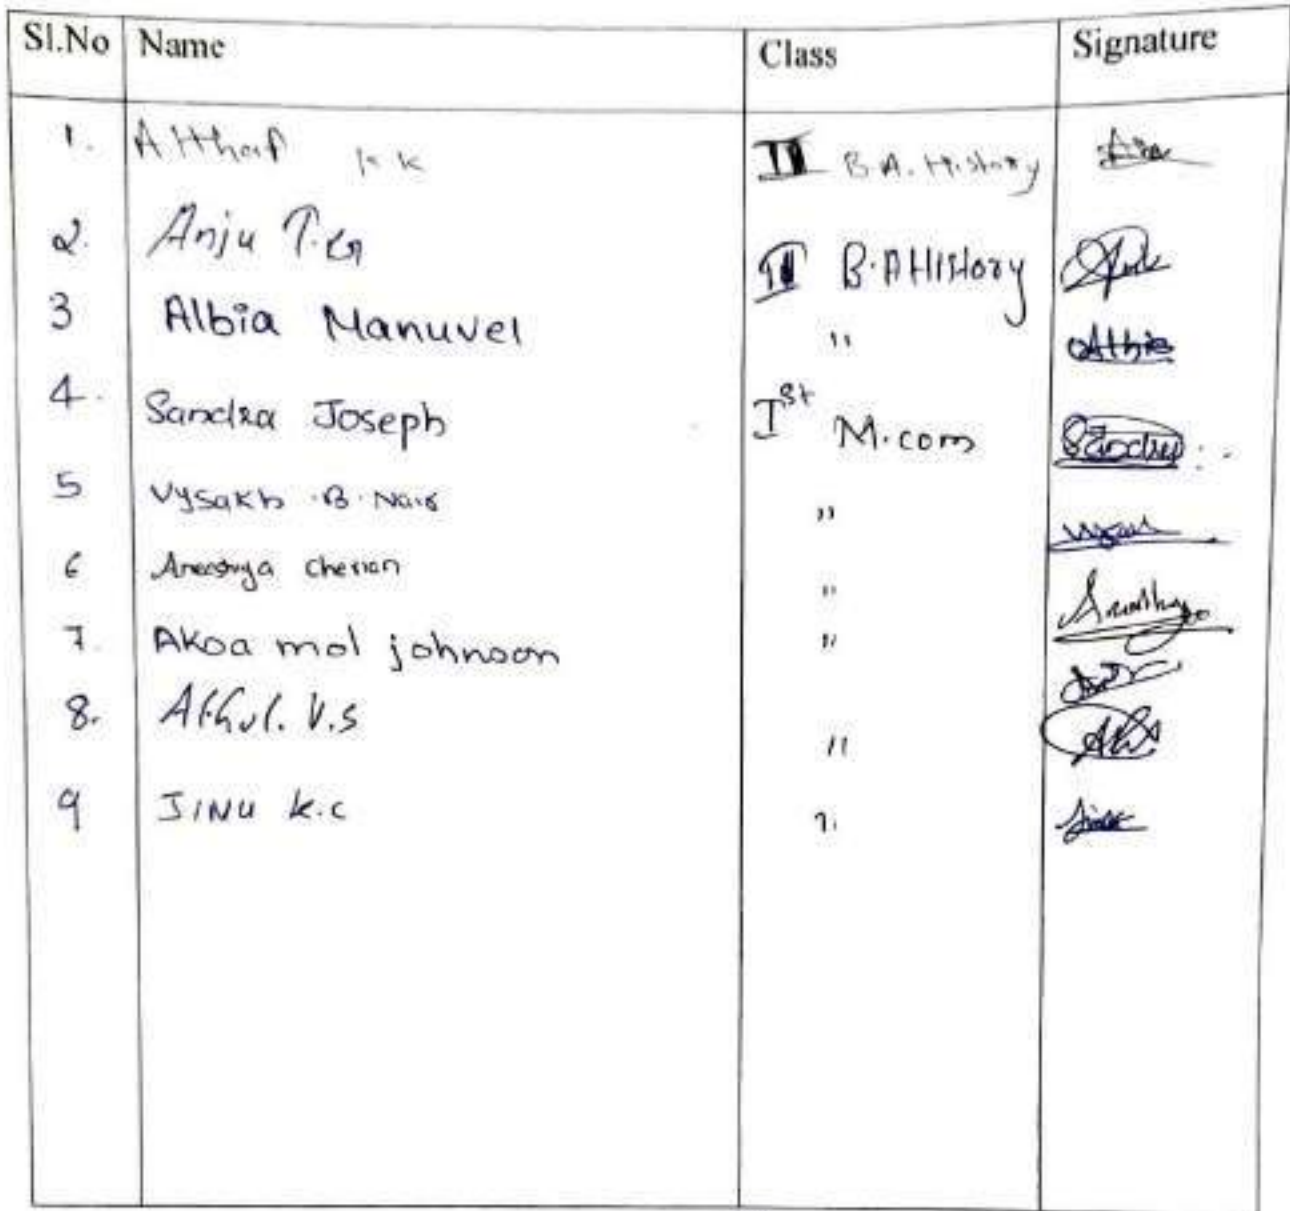 Sl.No Name Class Signature
1. Althaf K K II B.A. History
2. Anju T.G II B.A History
3 Albia Manuvel " Albia
4. Sandra Joseph Ist M.com Sandra
5 Vysakh .B. Nair "
6 cherian "
7. mol johnson "
8. Athul. V.S "
9 JINU K.C " Jinu